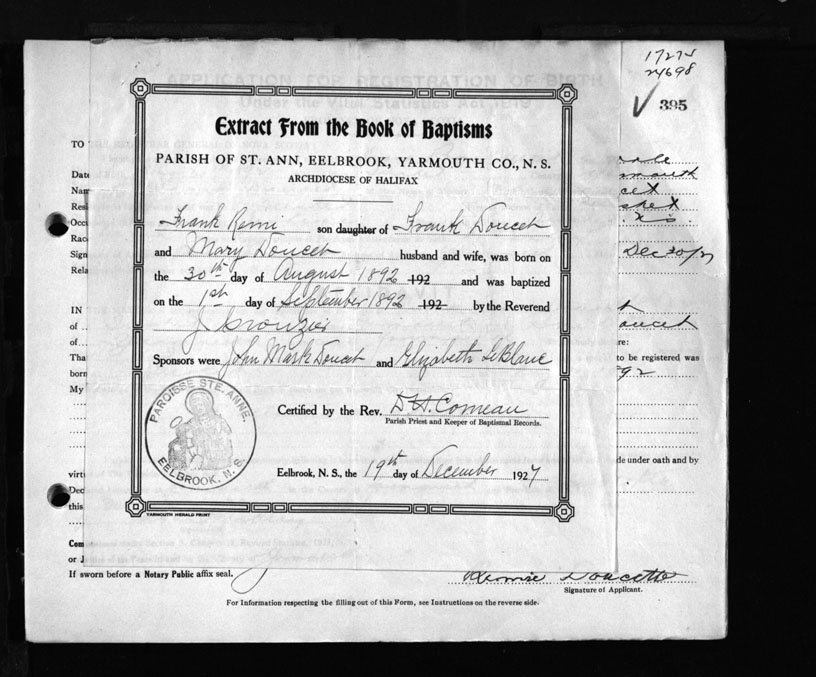 17275
24698
395
APPLICATION FOR REGISTRATION OF BIRTH
Under the Vital Statistics Act 1919
Extract From the Book of Baptisms
PARISH OF ST. ANN, EELBROOK, YARMOUTH CO., N. S.
ARCHDIOCESE OF HALIFAX
Frank Remi son daughter of Frank Doucet
and Mary Doucet husband and wife, was born on
the 30th day of August 1892 192 and was baptized
on the 1st day of September 1892 192 by the Reverend
Sponsors were John Mark Doucet and Elizabeth LeBlanc
PAROISSE STE. ANNE.
EELBROOK, N. S.
Certified by the Rev. D. H. Comeau
Parish Priest and Keeper of Baptismal Records.
Eelbrook, N. S., the 19th day of December 1927
YARMOUTH HERALD PRINT
TO
Date
Nam
Resi
Occu
Race
Sign
Rela
IN
of
of
Tha
born
My
virt
Dec
this
Com
or J
Dec 30/27
re:
to be registered was
de under oath and by
If sworn before a Notary Public affix seal.
Doucette
Signature of Applicant.
For Information respecting the filling out of this Form, see Instructions on the reverse side.